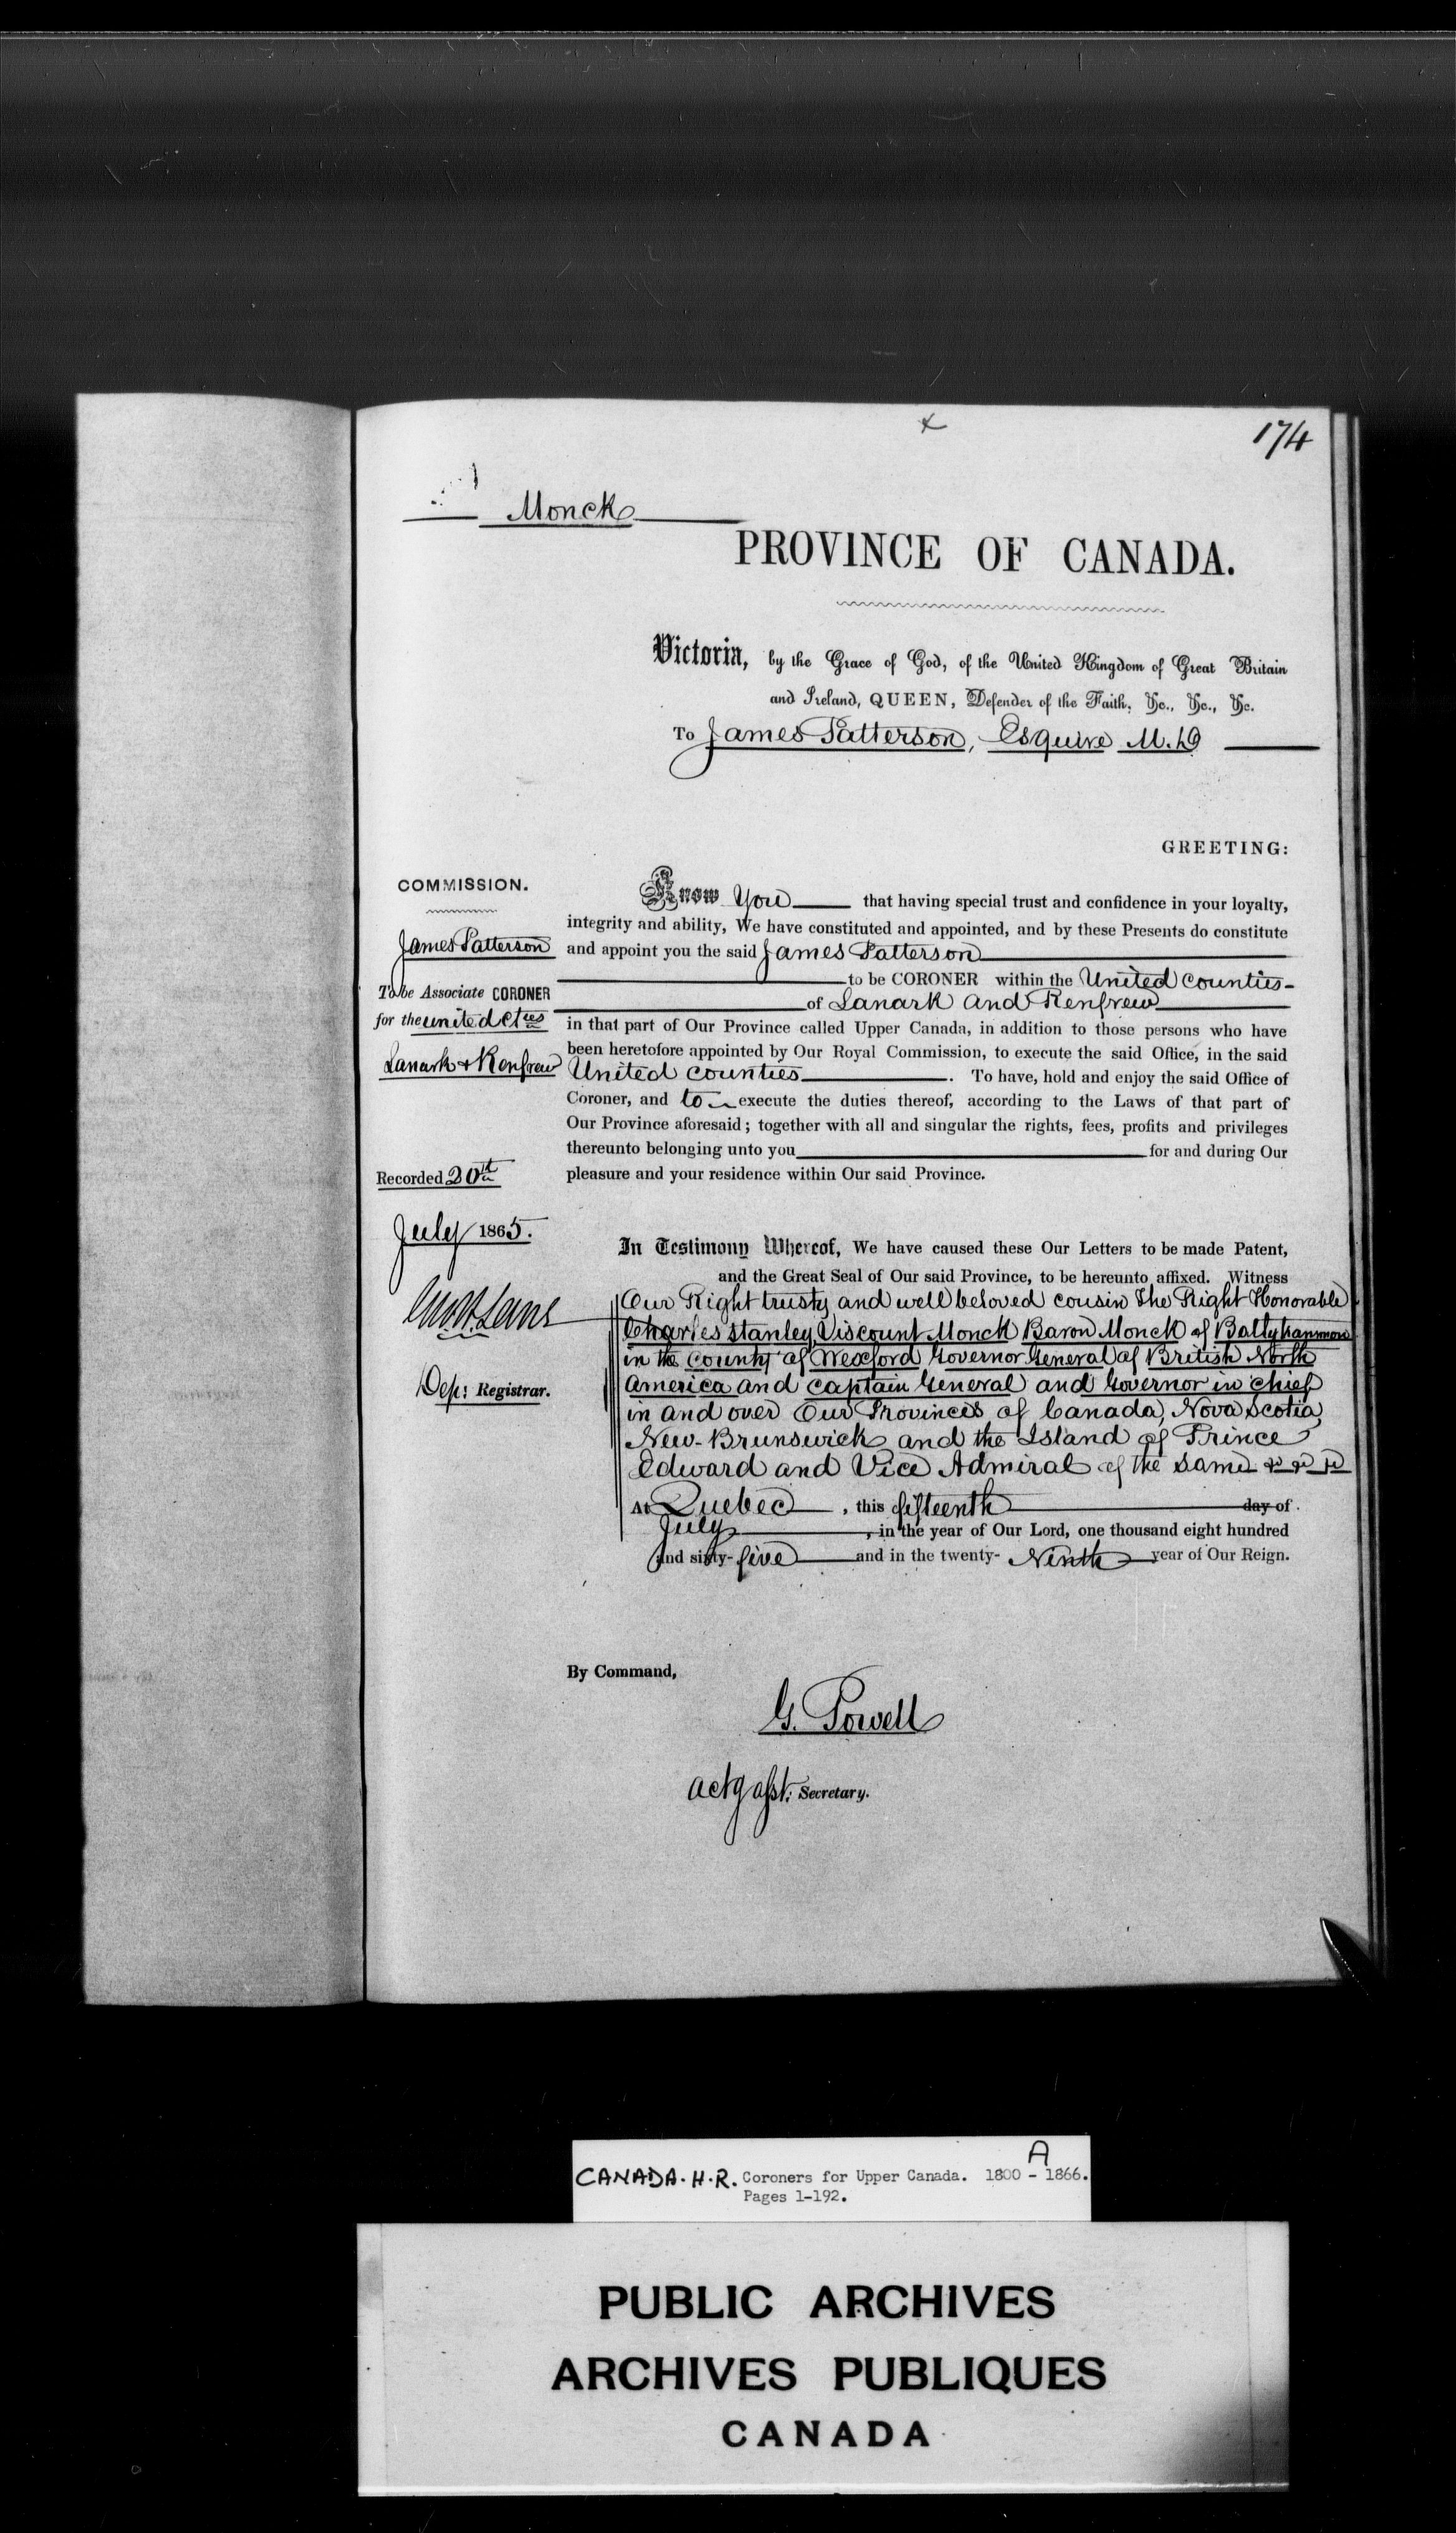 174
Monck
PROVINCE OF CANADA.
Victoria, by the Grace of God, of the United Kingdom of Great Britain
and Ireland, QUEEN, Defender of the Faith, &c., &c., &c.
To James Patterson, Esquire M.D
GREETING:
COMMISSION.
James Patterson
To be Associate CORONER
for the united cties
Lanark & Renfrew
Recorded 20th
July 1865.
Dep: Registrar.
Know You that having special trust and confidence in your loyalty,
integrity and ability, We have constituted and appointed, and by these Presents do constitute
and appoint you the said James Patterson
to be CORONER within the United Counties
of Lanark and Renfrew
in that part of Our Province called Upper Canada, in addition to those persons who have
been heretofore appointed by Our Royal Commission, to execute the said Office, in the said
United Counties. To have, hold and enjoy the said Office of
Coroner, and to execute the duties thereof, according to the Laws of that part of
Our Province aforesaid; together with all and singular the rights, fees, profits and privileges
thereunto belonging unto you for and during Our
pleasure and your residence within Our said Province.
In Testimony Whereof, We have caused these Our Letters to be made Patent,
and the Great Seal of Our said Province, to be hereunto affixed. Witness
Our Right trusty and well beloved cousin The Right Honorable
Charles Stanley, Viscount Monck Baron Monck of Ballytrammon
in the County of Wexford Governor General of British North
America and Captain General and Governor in chief
in and over Our Provinces of Canada, Nova Scotia,
New-Brunswick and the Island of Prince
Edward and Vice Admiral of the same &c &c &c
At Quebec, this fifteenth day of
July, in the year of Our Lord, one thousand eight hundred
and sixty-five and in the twenty-Ninth year of Our Reign.
By Command,
G. Powell
actg asst: Secretary.
CANADA. H.R. Coroners for Upper Canada. 1800 - 1866. A
Pages 1-192.
PUBLIC ARCHIVES
ARCHIVES PUBLIQUES
CANADA